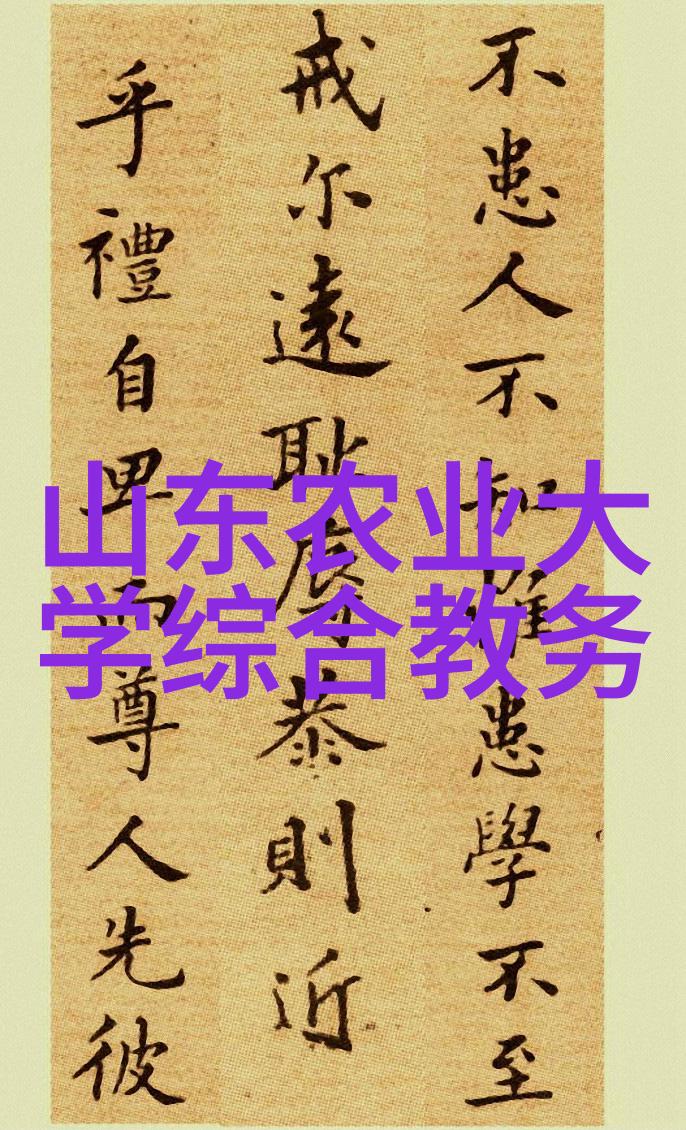 不患人不知惟患學不至
戒尔遠恥辱恭則近
乎禮自卑而尊人先彼
山东农业大
学综合教务